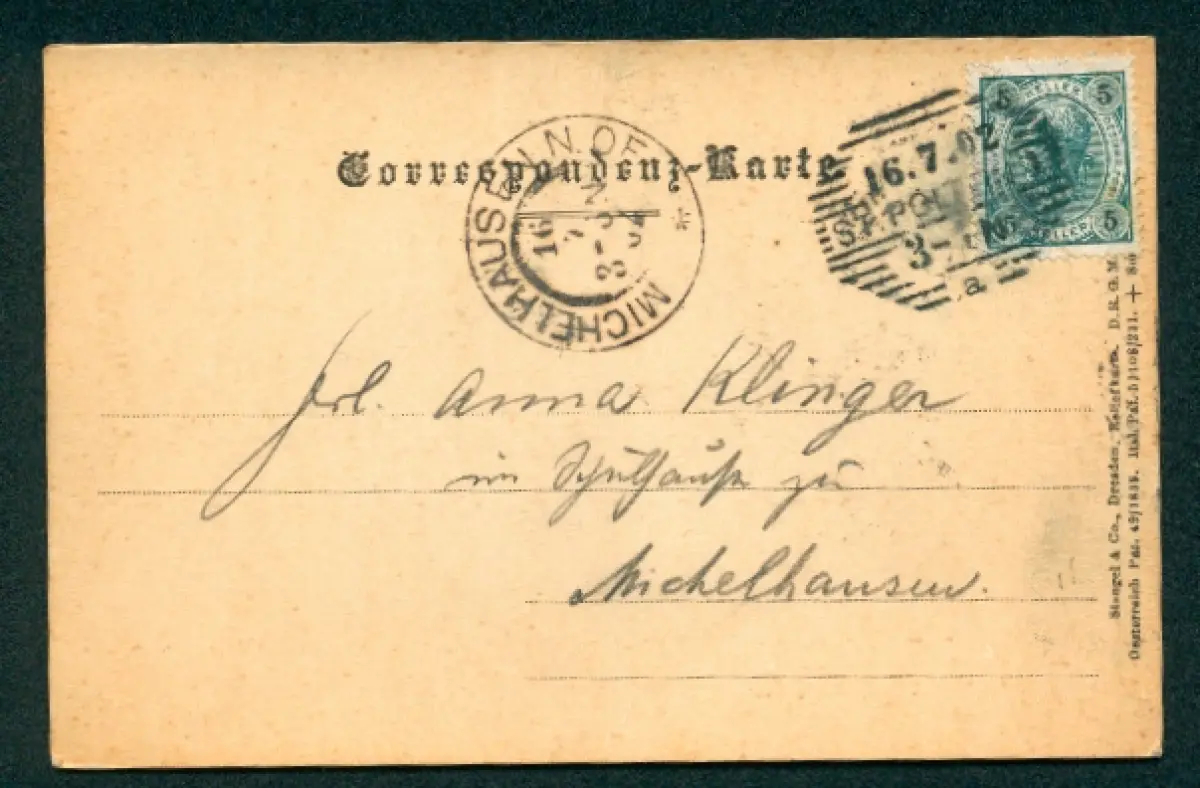 Correspondenz-Karte
MICHELHAUSEN N.OE. *
16
7
3-
16.7.02
ST. PÖLTEN
3
a
5 5
HELLER
5 5
HELLER
Frl. Anna Klinger
im Schulhause zu
Michelhausen.
Stengel & Co., Dresden, Reliefkarte. D. R. G. M.
Oesterreich Pat. 49/1835. Ital. Pat.